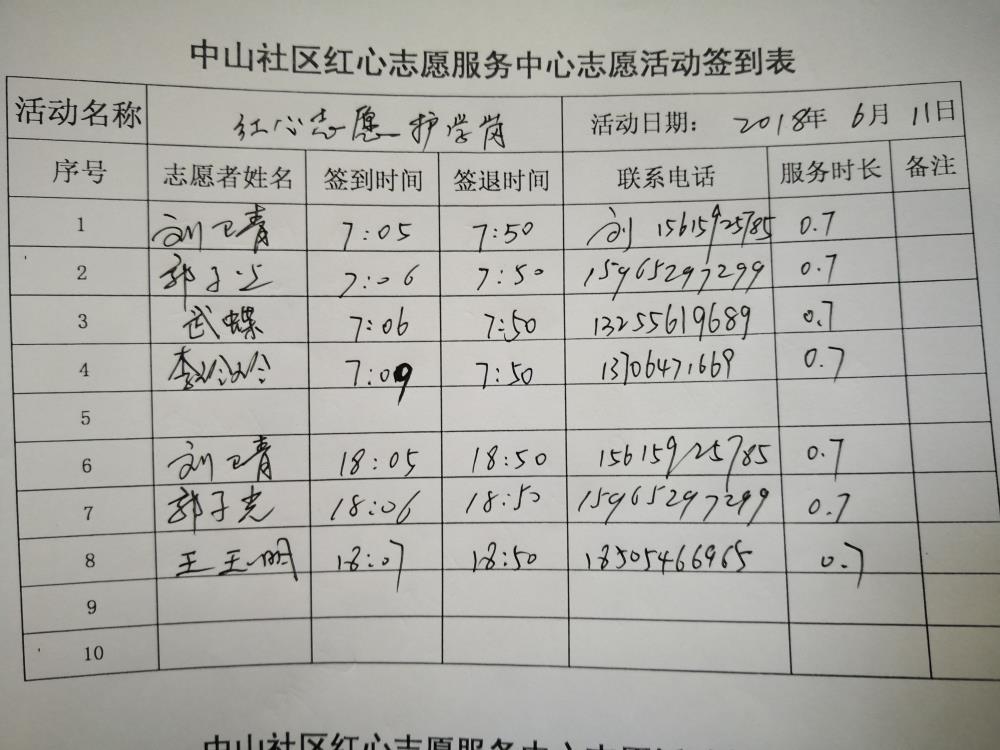 中山社区红心志愿服务中心志愿活动签到表
活动名称 红心志愿护学岗 活动日期： 2018年 6月 11日
序号 志愿者姓名 签到时间 签退时间 联系电话 服务时长 备注
1 刘卫青 7:05 7:50 刘 15615925785 0.7
2 郭子光 7:06 7:50 15965297299 0.7
3 武蝶 7:06 7:50 13255619689 0.7
4 李 7:09 7:50 13706471669 0.7
5
6 刘卫青 18:05 18:50 15615925785 0.7
7 郭子光 18:06 18:50 15965297299 0.7
8 王玉明 18:07 18:50 18505466965 0.7
9
10
中山社区红心志愿服务中心志愿活